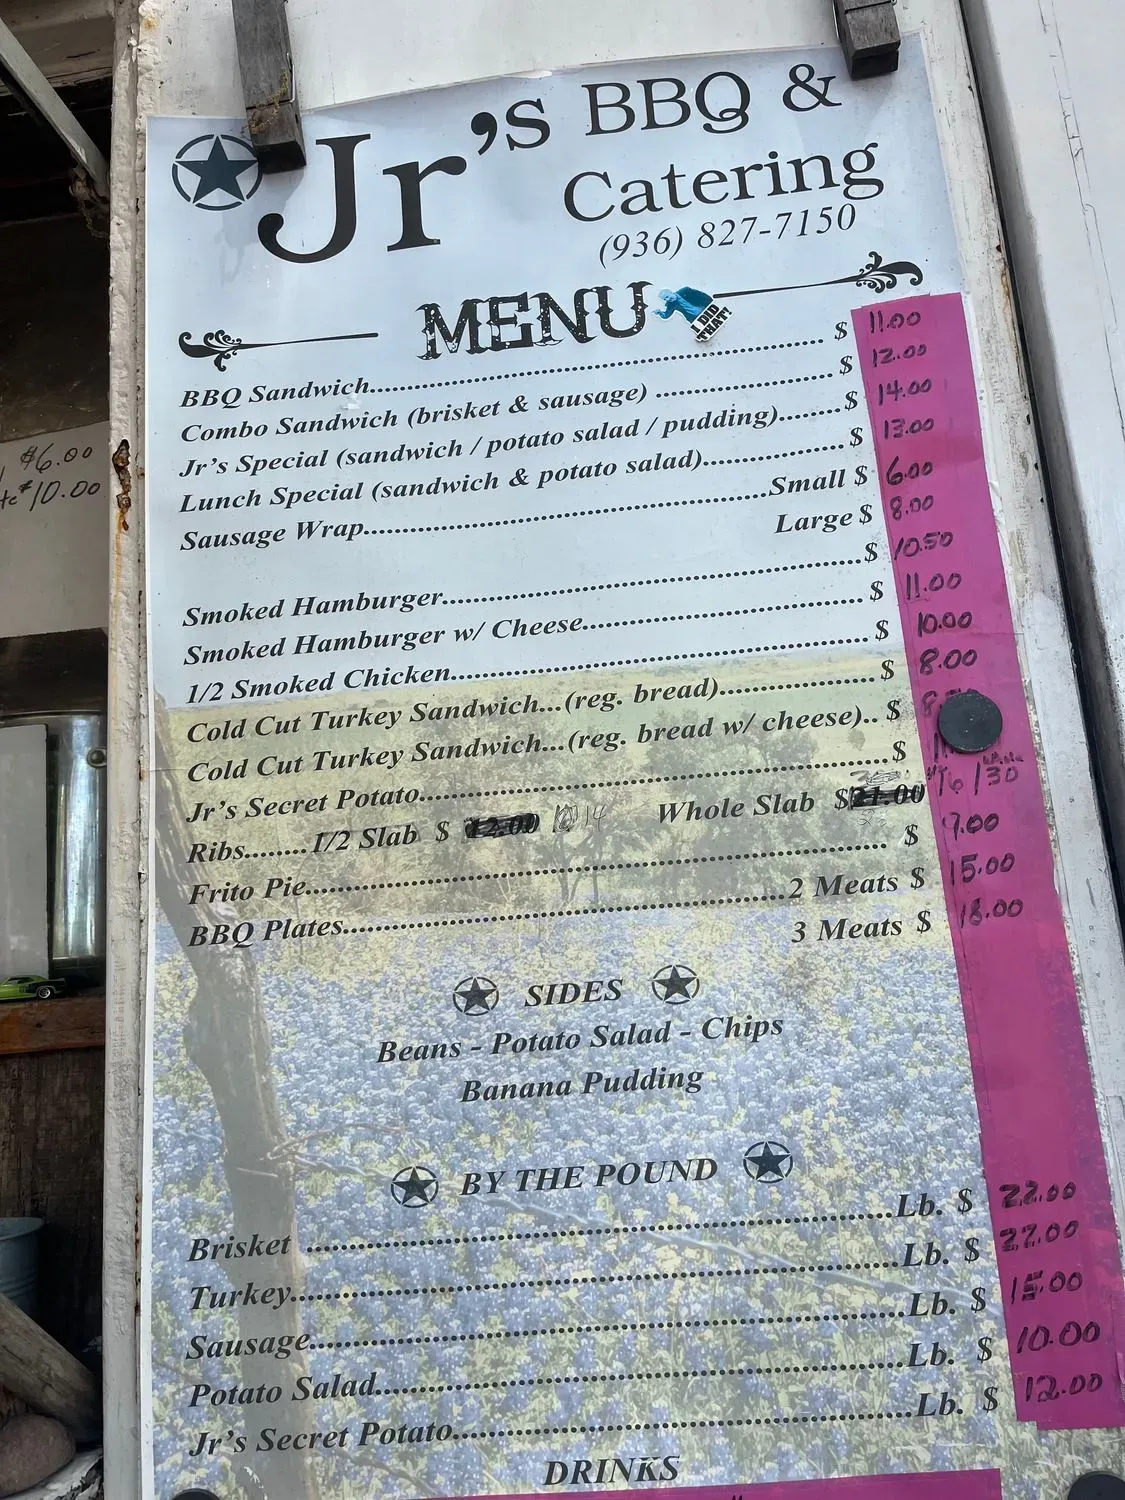 Jr's BBQ &
Catering
(936) 827-7150
MENU
I DID
THAT!
BBQ Sandwich........ $ 11.00
Combo Sandwich (brisket & sausage) ........ $ 12.00
Jr's Special (sandwich / potato salad / pudding)........ $ 14.00
Lunch Special (sandwich & potato salad)........ $ 13.00
Sausage Wrap........Small $ 6.00
Large $ 8.00
Smoked Hamburger........ $ 10.50
Smoked Hamburger w/ Cheese........ $ 11.00
1/2 Smoked Chicken........ $ 10.00
Cold Cut Turkey Sandwich...(reg. bread)........ $ 8.00
Cold Cut Turkey Sandwich...(reg. bread w/ cheese).. $
Jr's Secret Potato........ $
Ribs........1/2 Slab $ 12.00 14 Whole Slab $21.00 16/30
Frito Pie........ $ 9.00
BBQ Plates........2 Meats $ 15.00
3 Meats $ 18.00
SIDES
Beans - Potato Salad - Chips
Banana Pudding
BY THE POUND
Brisket ........Lb. $ 22.00
Turkey........Lb. $ 22.00
Sausage........Lb. $ 15.00
Potato Salad........Lb. $ 10.00
Jr's Secret Potato........Lb. $ 12.00
DRINKS
$6.00
$10.00